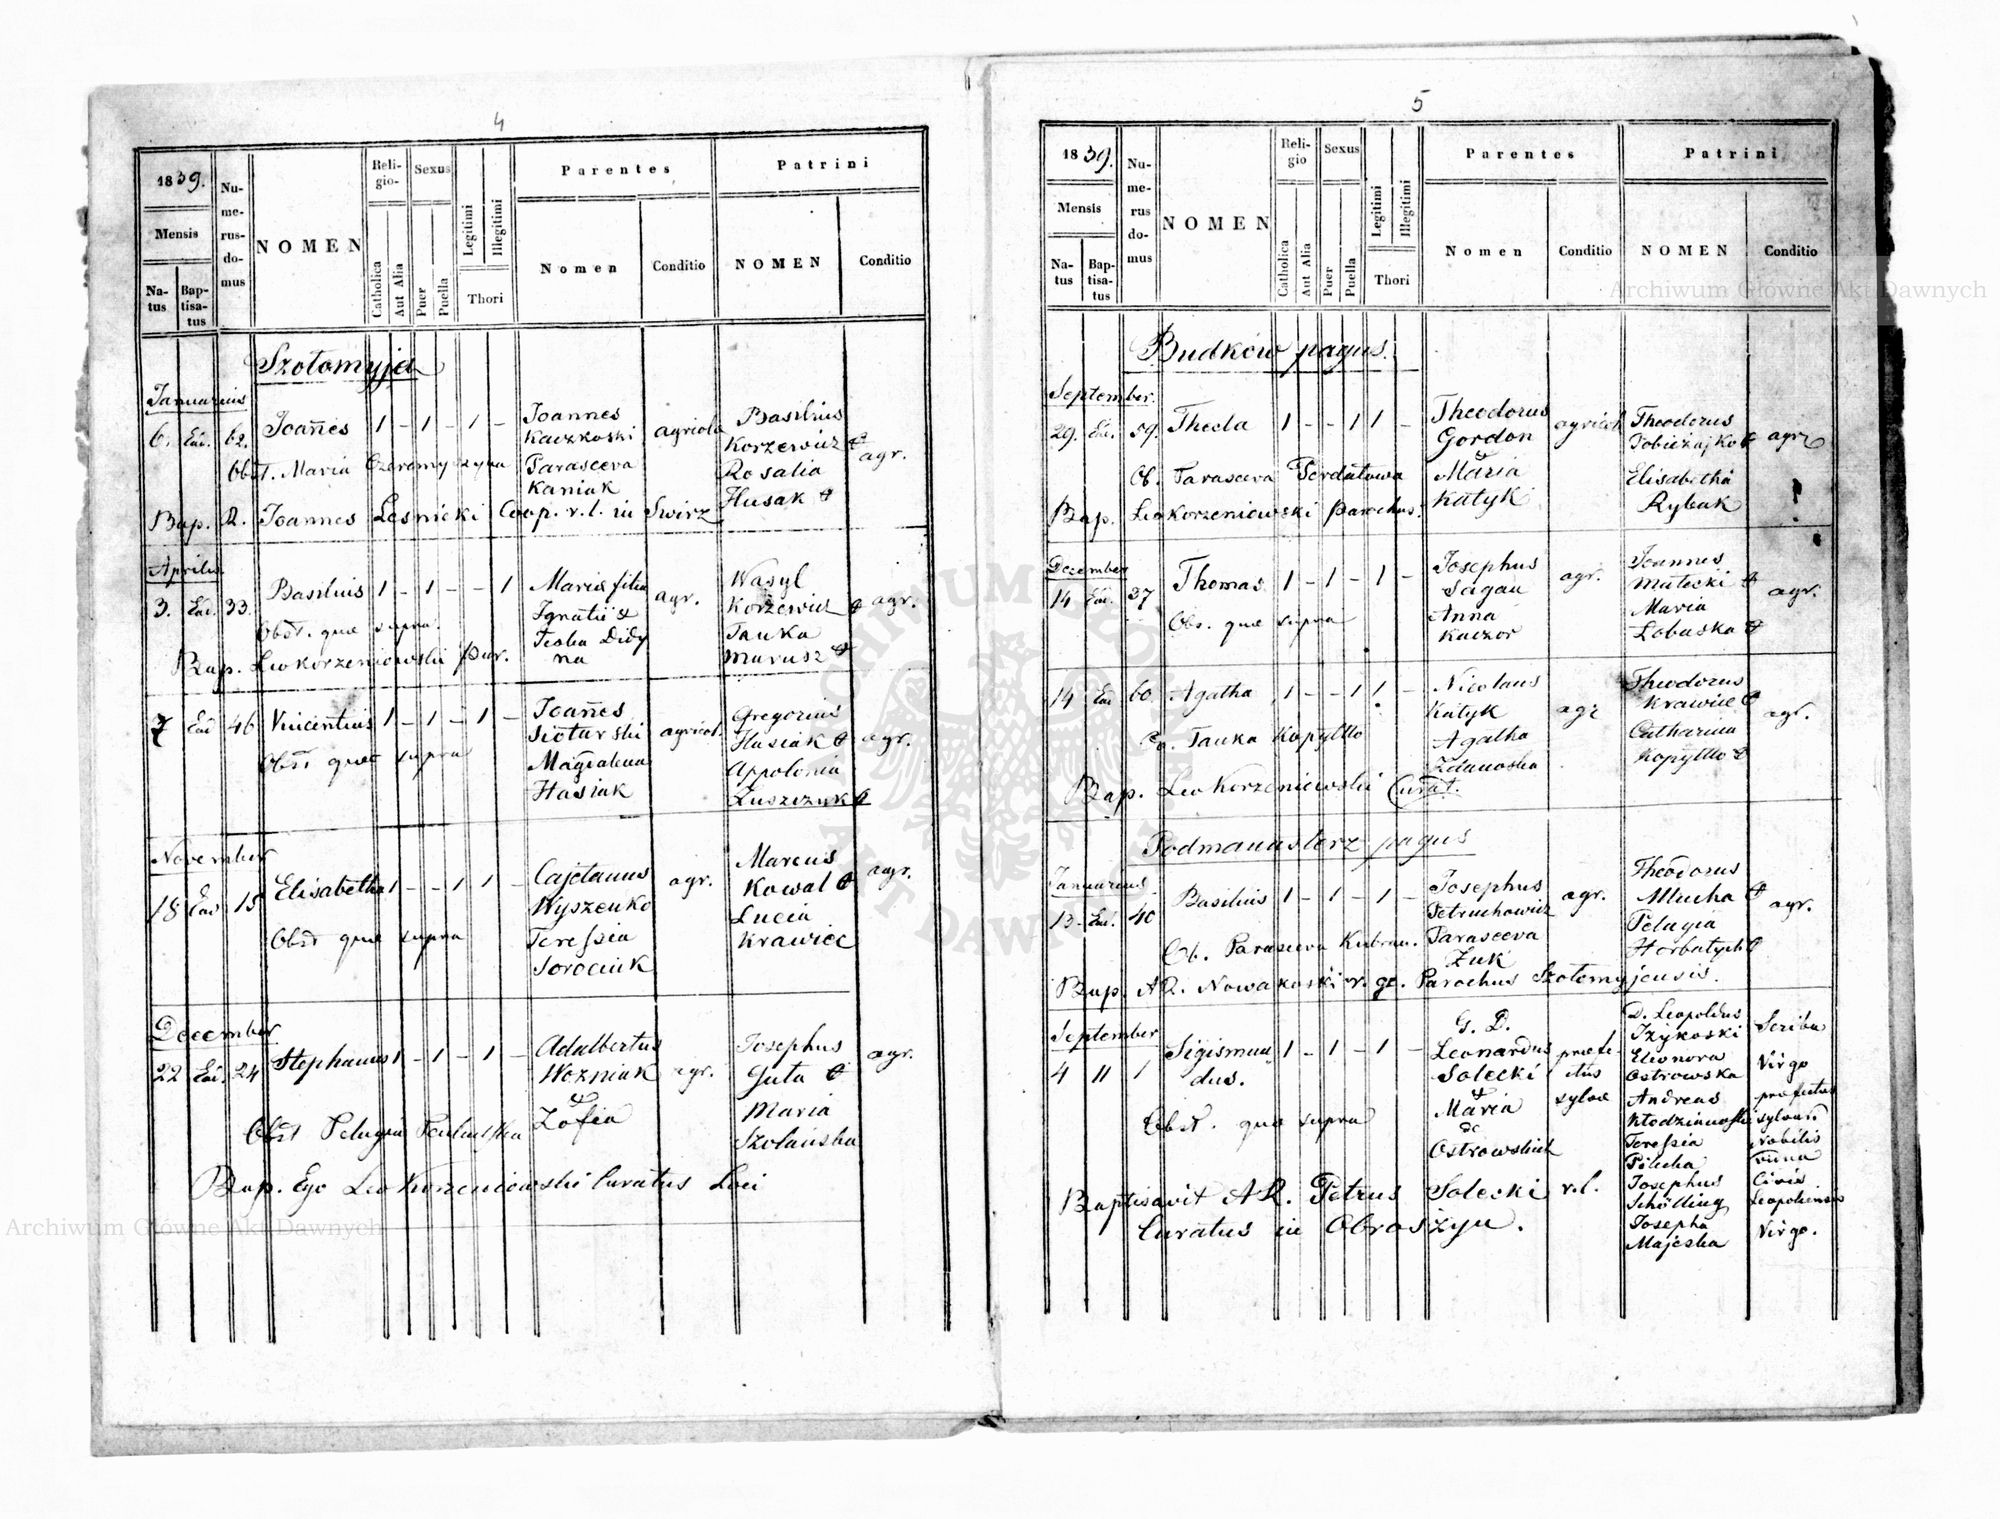 4
1839.
Mensis
Natus
Baptisatus
Numerus domus
NOMEN
Religio
Catholica
Aut Alia
Sexus
Puer
Puella
Legitimi
Illegitimi
Thori
Parentes
Nomen
Conditio
Patrini
NOMEN
Conditio
Szołomyja
Januarius
6. Ead. 62. Joañes 1 - 1 - 1 - Joannes agricola Basilius
Kaczkoski Korzewicz & agr.
Obst. Maria Parasceva Rosalia
Kaniak Husak &
Bap. R. Joannes Leśnicki Coop. r. l. in Swirz
Aprilis
3. Ead. 33. Basilius 1 - 1 - - 1 Maria filia agr. Wasyl agr.
Obst. quae supra. Ignatii & Korzewicz &
Tekla Didy Tauka
na Marusz &
Bap. Leo Korzeniowski Par.
7 Ead 46 Vincentius 1 - 1 - 1 - Joañes agricol. Gregorius
Siotarski Husiak & agr.
Obst quae supra Magdalena Appolonia
Hasiak Łuszczuk &
November
18 Ead 15 Elisabetha 1 - - 1 1 - Cajetanus agr. Marcus agr.
Wyszenko Kowal &
Obst quae supra Teressia Lucia
Sorociuk Krawiec
December
22 Ead. 24 Stephanus 1 - 1 - 1 - Adalbertus Josephus agr.
Wozniak agr. Guta &
& Maria
Obst Pelagia Zofia
Bap. Ego Leo Korzeniowski Curatus Loci
5
1839.
Mensis
Natus
Baptisatus
Numerus domus
NOMEN
Religio
Catholica
Aut Alia
Sexus
Puer
Puella
Legitimi
Illegitimi
Thori
Parentes
Nomen
Conditio
Patrini
NOMEN
Conditio
Budków pagus.
September.
29. Ead. 59. Thecla 1 - - 1 1 - Theodorus agricol Theodorus
Gordon & agr
Ob. Parasceva Maria Elisabetha
Katyk Rybak
Bap. Leo Korzeniowski Parochus.
December
14 Ead. 37 Thomas 1 - 1 - 1 - Josephus agr. Joannes
Sagan Małecki & agr.
Obs. quae supra Anna Maria
Kaczor Łobaska &
14 Ead 60. Agatha 1 - - 1 1 - Nicolaus agr Theodorus
Katyk Krawiec & agr.
Ob. Tauka Kopyłtło Agatha Catharina
Zdanoska Kopyłtło &
Bap. Leo Korzeniewski Curat.
Podmanasterz pagus
Januarius
13. Ead. 40 Basilius 1 - 1 - 1 - Josephus agr. Theodorus
Petruchowicz Mucha & agr.
Ob. Parasceva Parasceva Pelagia
Żuk Horbatych &
Bap. AR. Nowakoski r. gr. Parochus Szołomyjensis.
September
4 11 1 Sigismun 1 - 1 - 1 - G. D. D. Leopoldus Scriba
dus. Leonardus praefe Iżykoski
Solecki ctus Eleonora Virgo
& Ostrowska
Obst. quae supra Maria sylvae Andreas prefectus
de Kłodzianoski sylvarū
Ostrowskich Teressia Nobilis
Pilecka vidua
Baptisavit AR. Petrus Solecki r. l. Josephus Civis
Curatus in Obroszyn. Schölling Leopoliensis
Josepha Virgo.
Majeska
Archiwum Główne Akt Dawnych
Archiwum Główne Akt Dawnych
ARCHIWUM GŁÓWNE AKT DAWNYCH